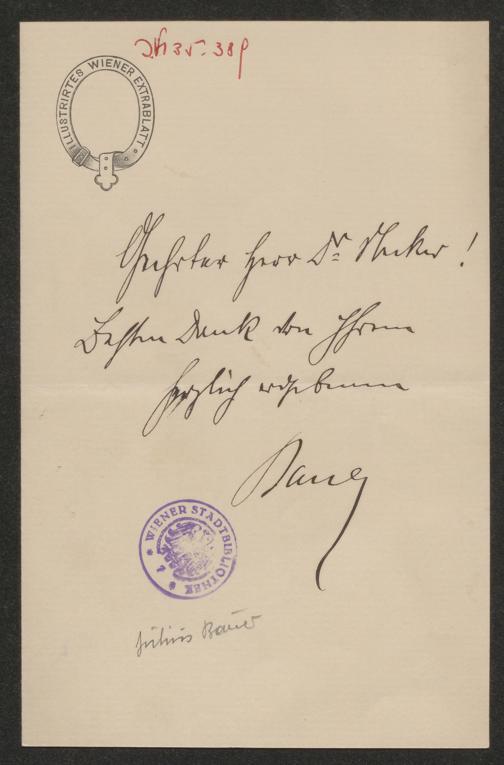 ILLUSTRIRTES WIENER EXTRABLATT.
Geehrter Herr Dr Necker!
Besten Dank von Ihrem
herzlich ergebenen
Bauer
WIENER STADTBIBLIOTHEK
Julius Bauer